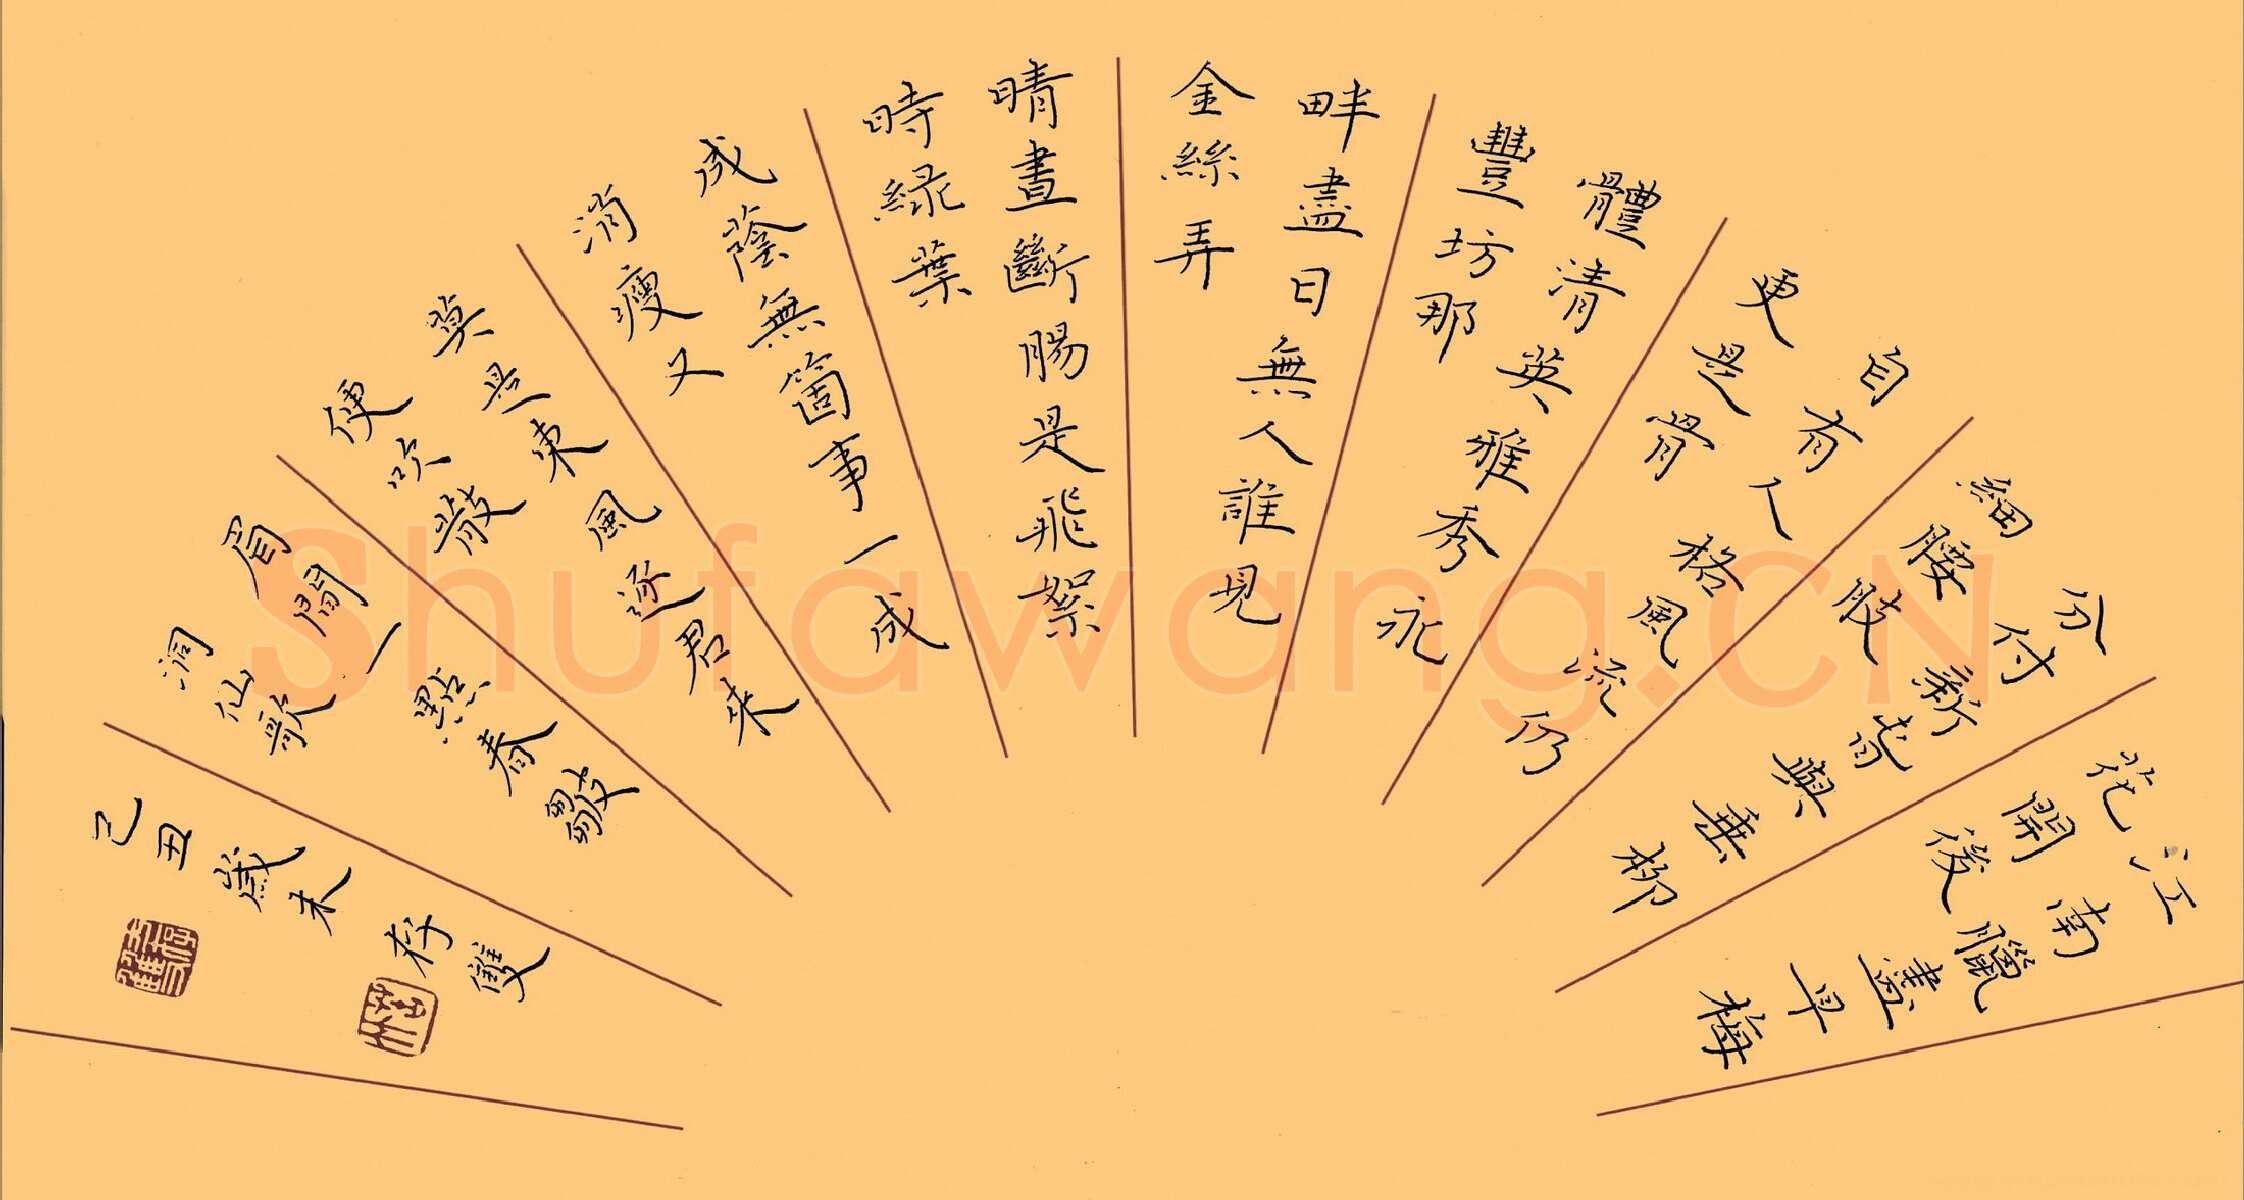 江南臘盡早梅
花開後
分付新旾與垂柳
細腰肢
自有入格風流仍
更是骨
體清英雅秀永
豐坊那
畔盡日無人誰見
金絲弄
晴晝斷腸是飛絮
時綠葉
成蔭無箇事一成
消瘦又
莫是東風逐君來
便吹散
眉間一點春皺
洞仙歌
己丑歲末 存雙
Shufawang.CN